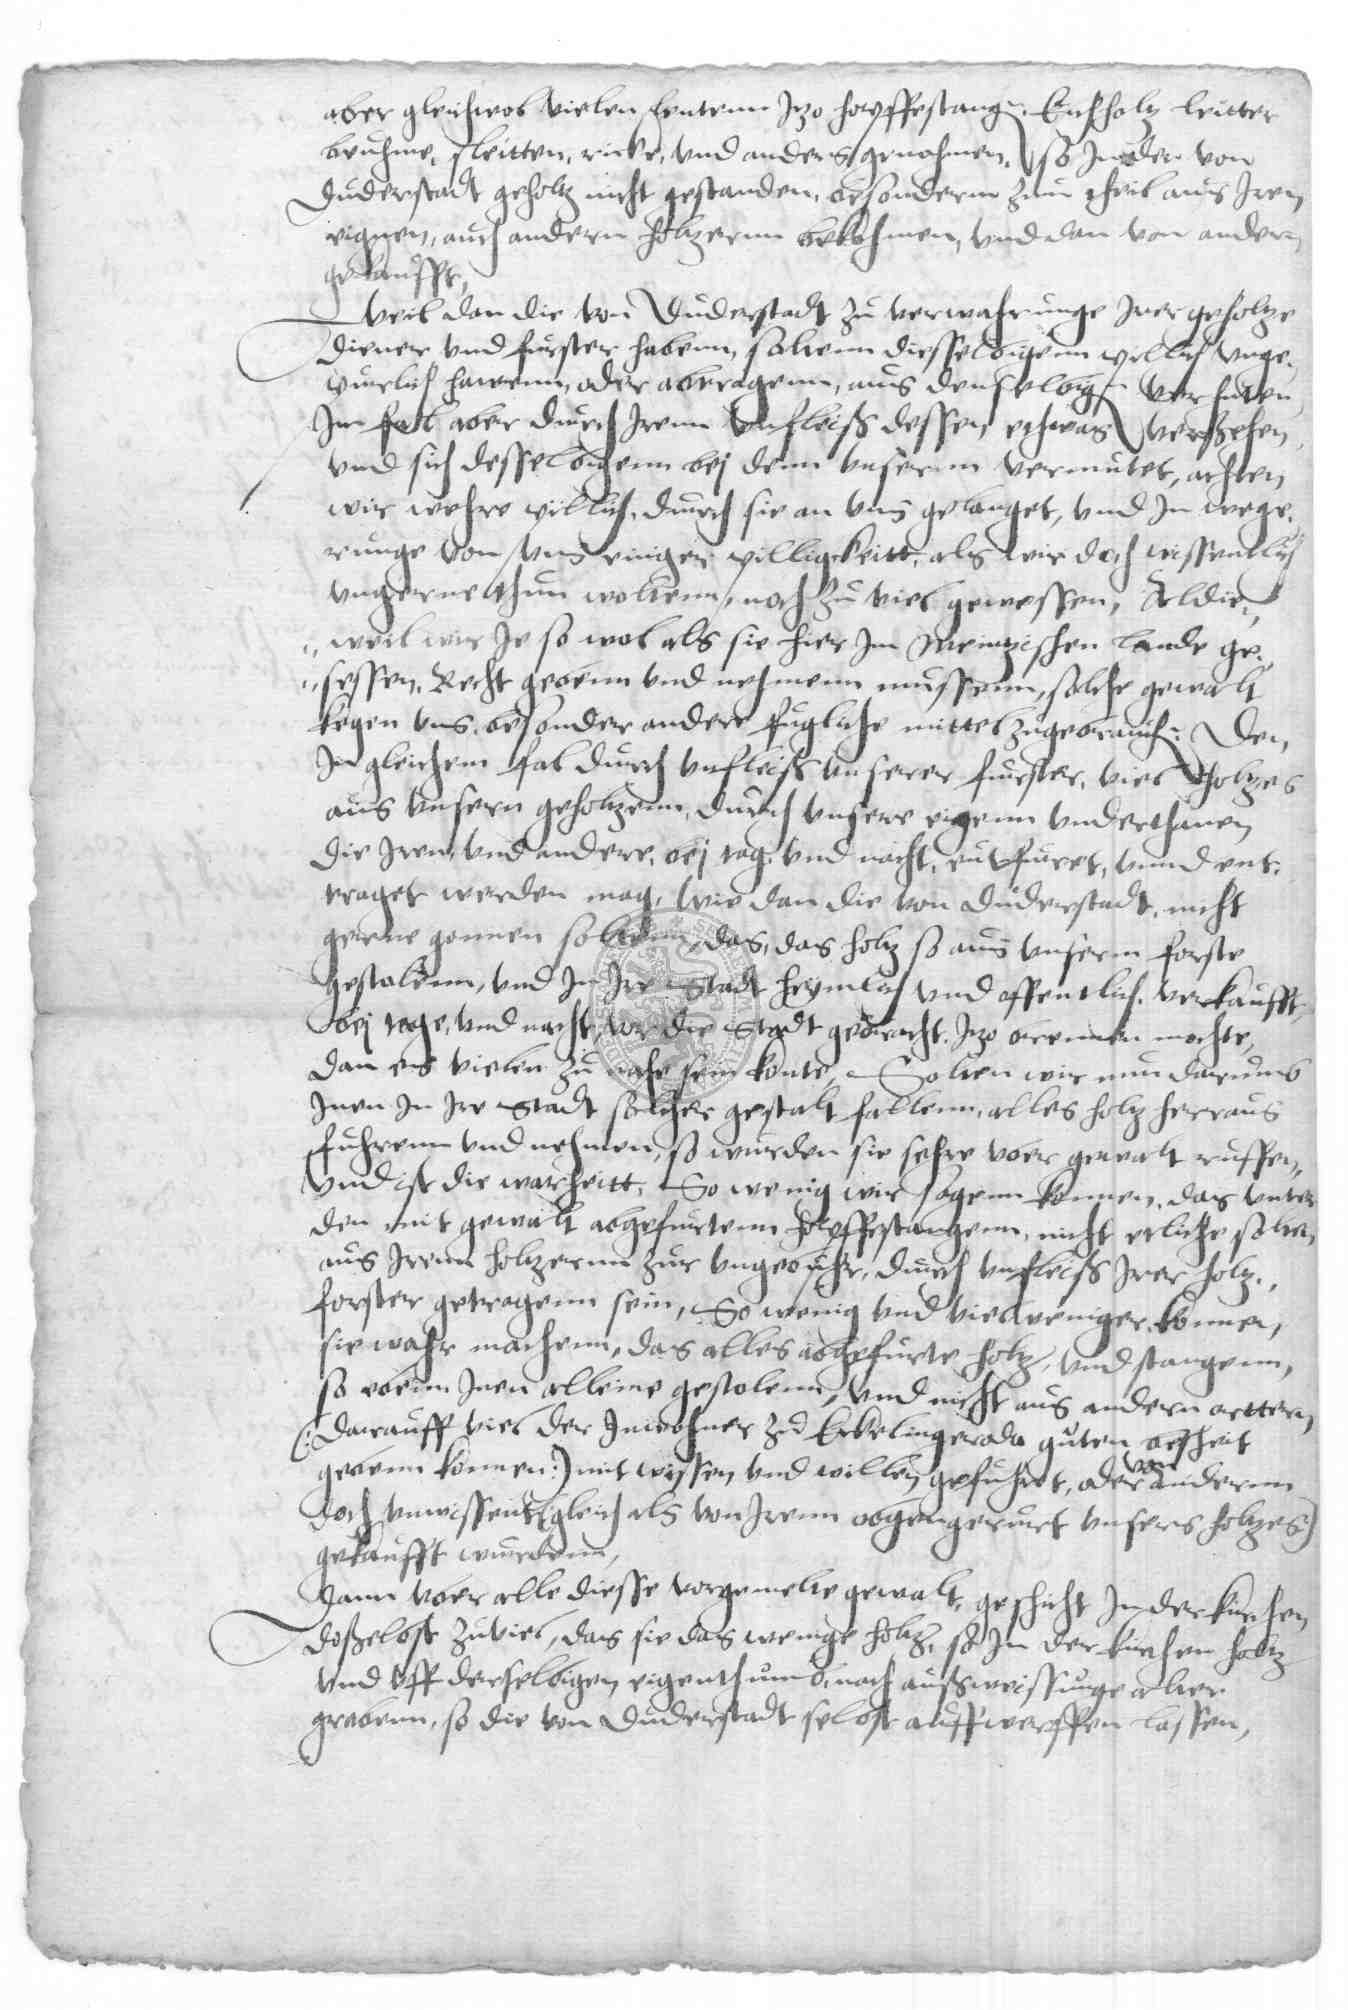 aber gleichwol vielen leutenn Jzo hopffestang Buchholtz leitter
beuhme, sleitten, ricke, vnd anders genohmen, so In der von
Duderstadt geholtz nicht gestanden, besonderm zum theil aus Iren
eignen, auch andern holtzernn bekohmen, vnd dan von andern
gekaufft,
Weil dan die von Duderstadt zu verwahrunge Irer geholtze
diener vnd furster habenn, soltenn diesselbigenn pillich vnge-
purlich hawenn, oder abtragenn, aus denselbig verhuten
Im fal aber durch Irenn Vnfleiss dessen ethwas versehen
vnd sich desselbigenn bej denn vnsernn vermutet, achten
wir wehre pillich, durch sie an vns gelanget, vnd In wege-
runge von vns einiger pilligkeitt, als wir doch wissentlich
vngerne thun woltenn, noch zu viel gewessen, Aldie-
weil wir Je so wol als sie hier Im Meintzischen lande ge-
sessen, Recht gebenn vnd nehmenn mussenn, solche gewalt
kegen vns, besonder andere fugliche mittel zugebrauch Den
In gleichem fal durch vnfleiss vnserer furster, viel holtzes
aus vnsern geholtzenn, durch vnsere eigenn vnderthanen
die Iren, vnd andere, bej tag vnd nacht, entfuret, vnnd ent-
traget werden mag, wie dan die von Duderstadt, nicht
gerne gonnen soltenn, das, das holtz so aus vnserm forste
gestolenn, vnd In Ire Stadt heimlich vnd offentlich verkaufft,
bej tage, vnd nacht, vor die Stadt gebracht, Jzo brennen mochte,
dan es vielen zu nahe sein konte, Solten wir nun darumb
Inen In Ire Stadt solcher gestalt fallenn, alles holtz herraus
fuhrenn vnd nehmen, so wurden sie sehre vber gewalt ruffen,
vnd ist die warheitt, So wenig wir sagenn konnen, das vnter
den mit gewalt abgefurtenn hopffestangenn, nicht etliche solten
aus Irenn holtzernn zur vngebuhr, durch vnfleiss Irer holtz-
forster getragenn sein, So wenig vnd viel weniger konnen
sie wahr machenn, das alles abgefurte holtz, vnd stangenn,
so ebenn Inen alleine gestolenn, vnd nicht aus andern orttern
(: darauff viel der Inwohner zu Eckelingeroda guten bescheit
gebenn konnen :) mit wissen vnd willen gefuhret, oder von anderm
doch vnwissent (gleich als von Irenn obgengerurt vnsers holtzes)
gekaufft wurdenn,
Dann vber alle diesse vorgemelte gewalt, geschicht In der kirchen
doselbst zuviel, das sie das wenige holtz, so In der kirchen holtz
vnd vff derselbigen eigenthumb, nach ausweissunge alter
grebenn, so die von Duderstadt selbst auffwerffen lassen,